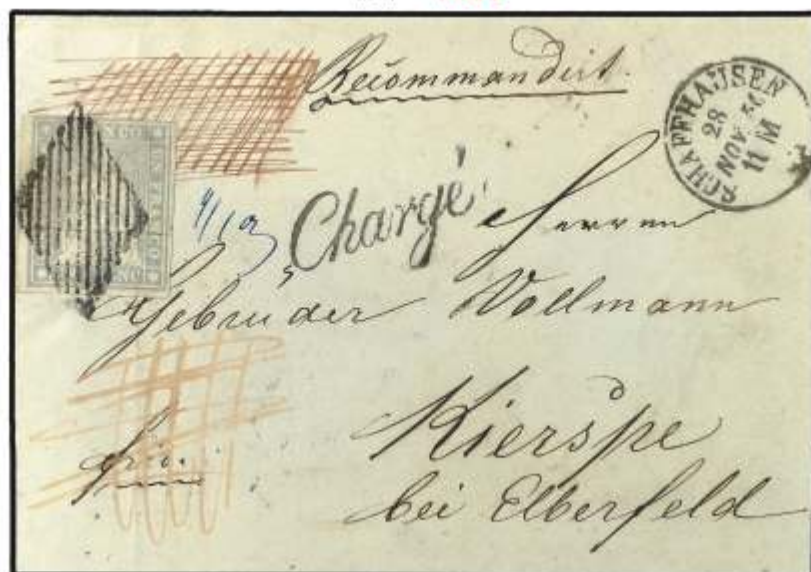 Recommandirt.
SCHAFFHAUSEN
28
NOV
11 M
FRANCO
Chargé
Herren
Gebrüder Vollmann
Kierspe
bei Elberfeld